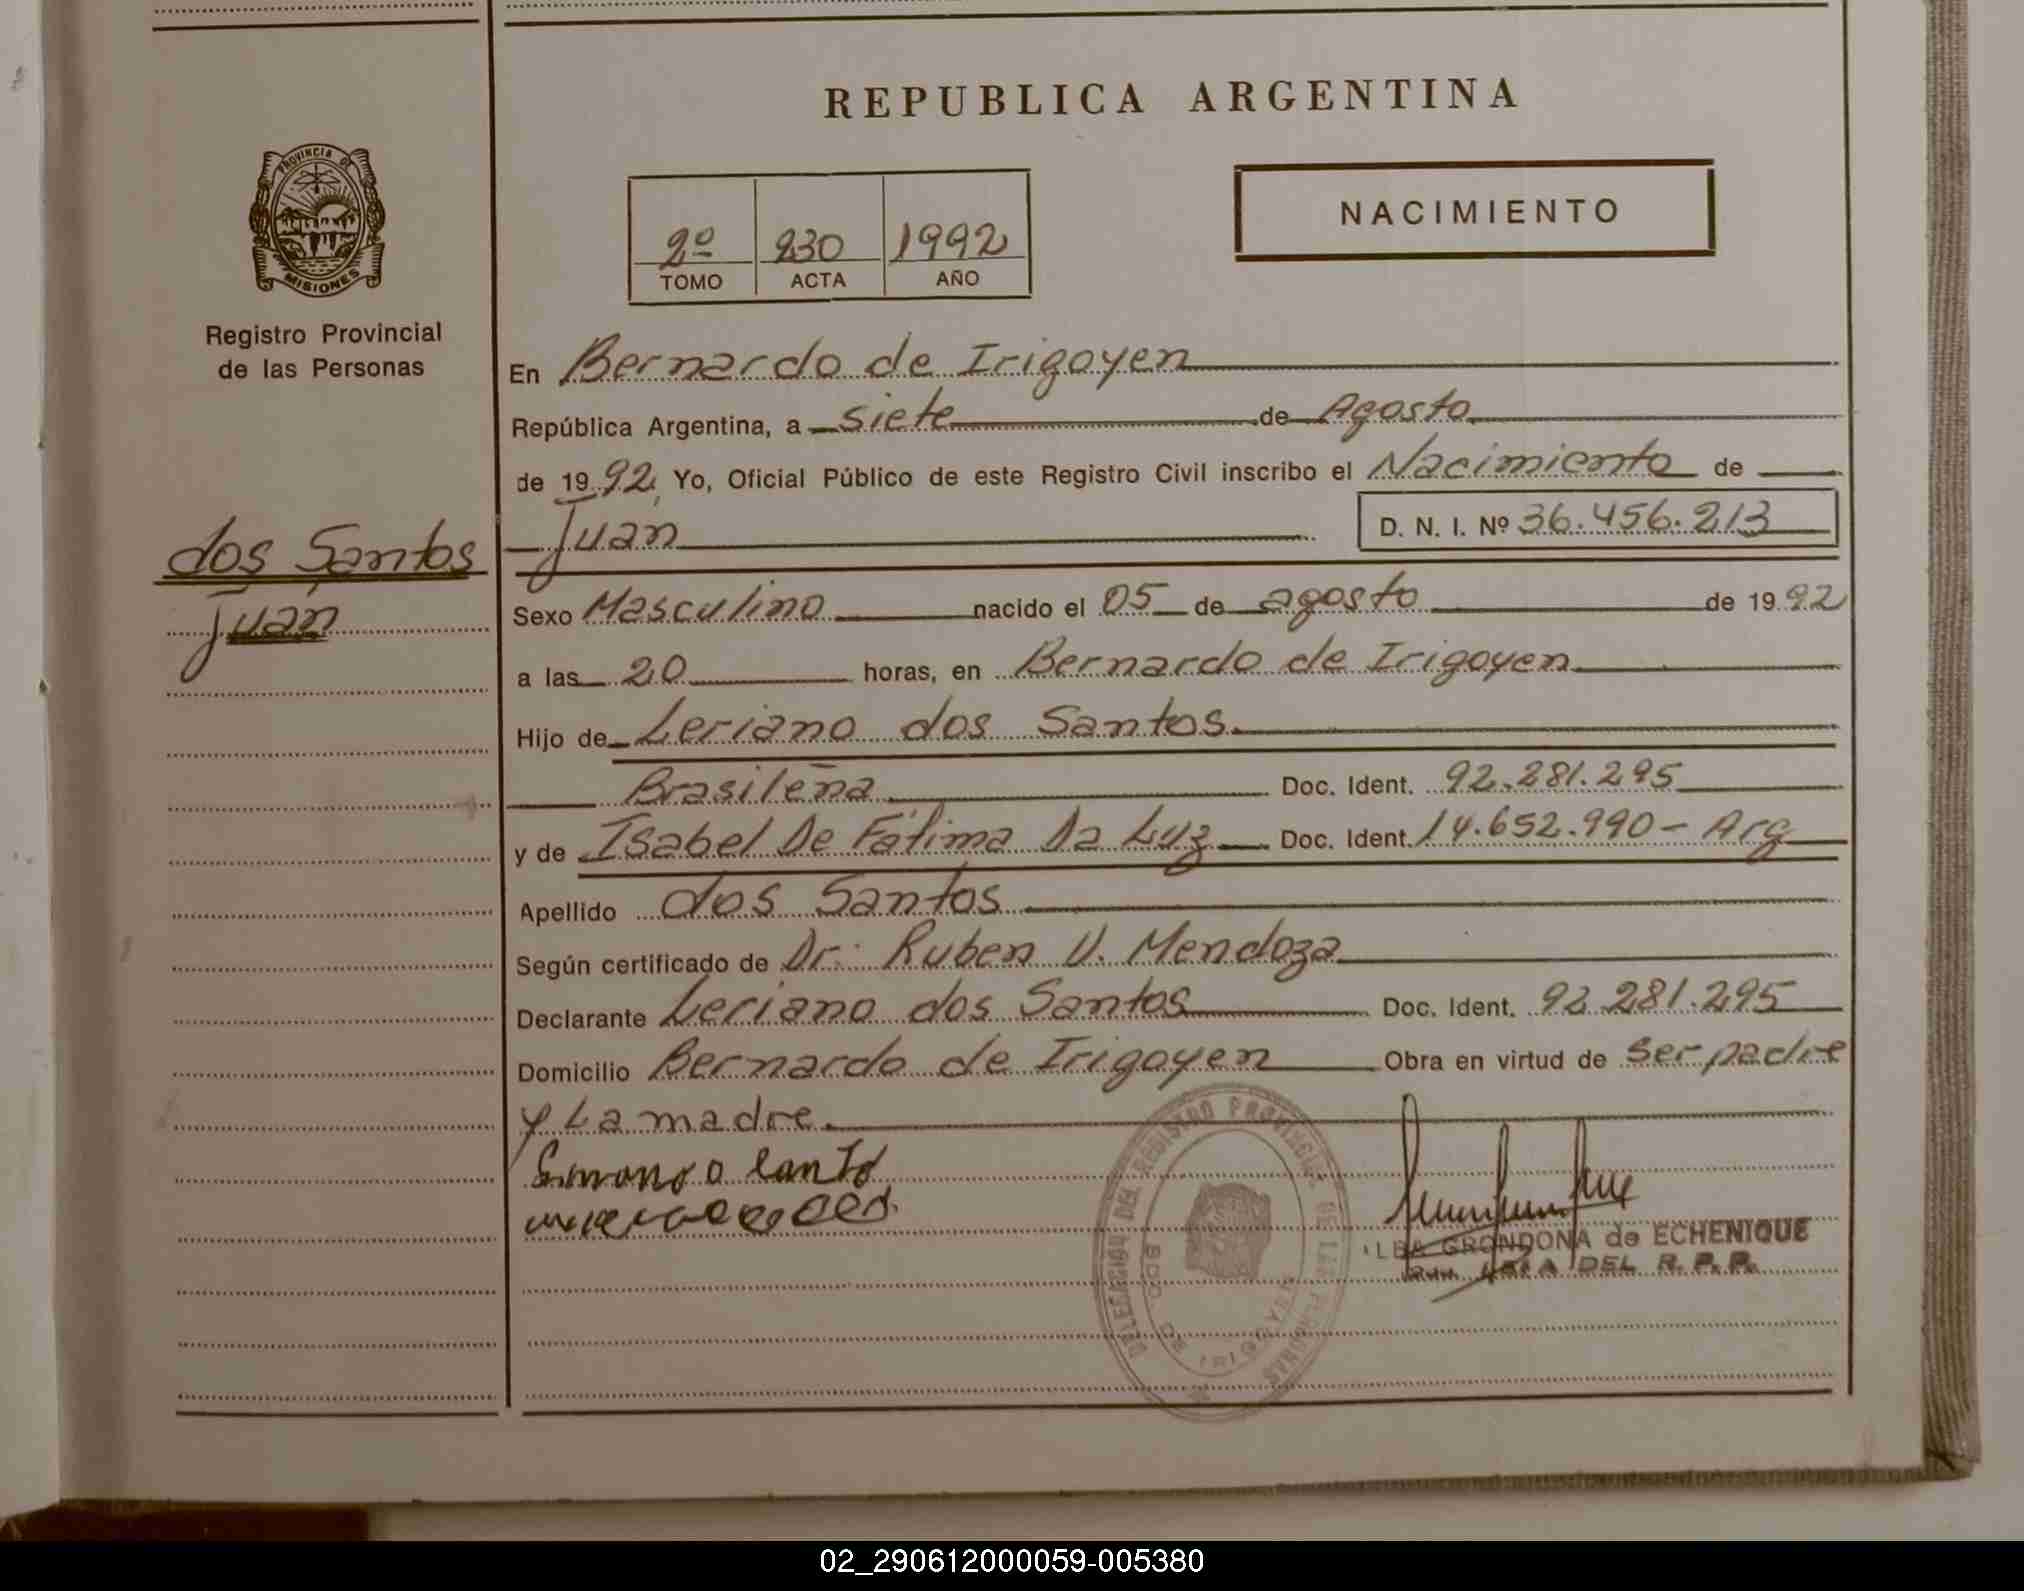 REPUBLICA ARGENTINA
PROVINCIA DE
MISIONES
Registro Provincial
de las Personas
NACIMIENTO
2º 230 1992
TOMO ACTA AÑO
En Bernardo de Irigoyen
República Argentina, a siete de Agosto
de 1992 Yo, Oficial Público de este Registro Civil inscribo el Nacimiento de
Juan D. N. I. Nº 36.456.213
dos Santos
Juan
Sexo Masculino nacido el 05 de agosto de 1992
a las 20 horas, en Bernardo de Irigoyen
Hijo de Leriano dos Santos
Brasileña Doc. Ident. 92.281.295
y de Isabel De Fátima Da Luz Doc. Ident. 14.652.990 - Arg
Apellido dos Santos
Según certificado de Dr. Ruben V. Mendoza
Declarante Leriano dos Santos Doc. Ident. 92.281.295
Domicilio Bernardo de Irigoyen Obra en virtud de ser padre
y La madre
DELEGACION DEL REGISTRO PROVINCIAL DE LAS PERSONAS
BDO. DE IRIGOYEN
GRONDONA de ECHENIQUE
DEL R. P. P.
02_290612000059-005380